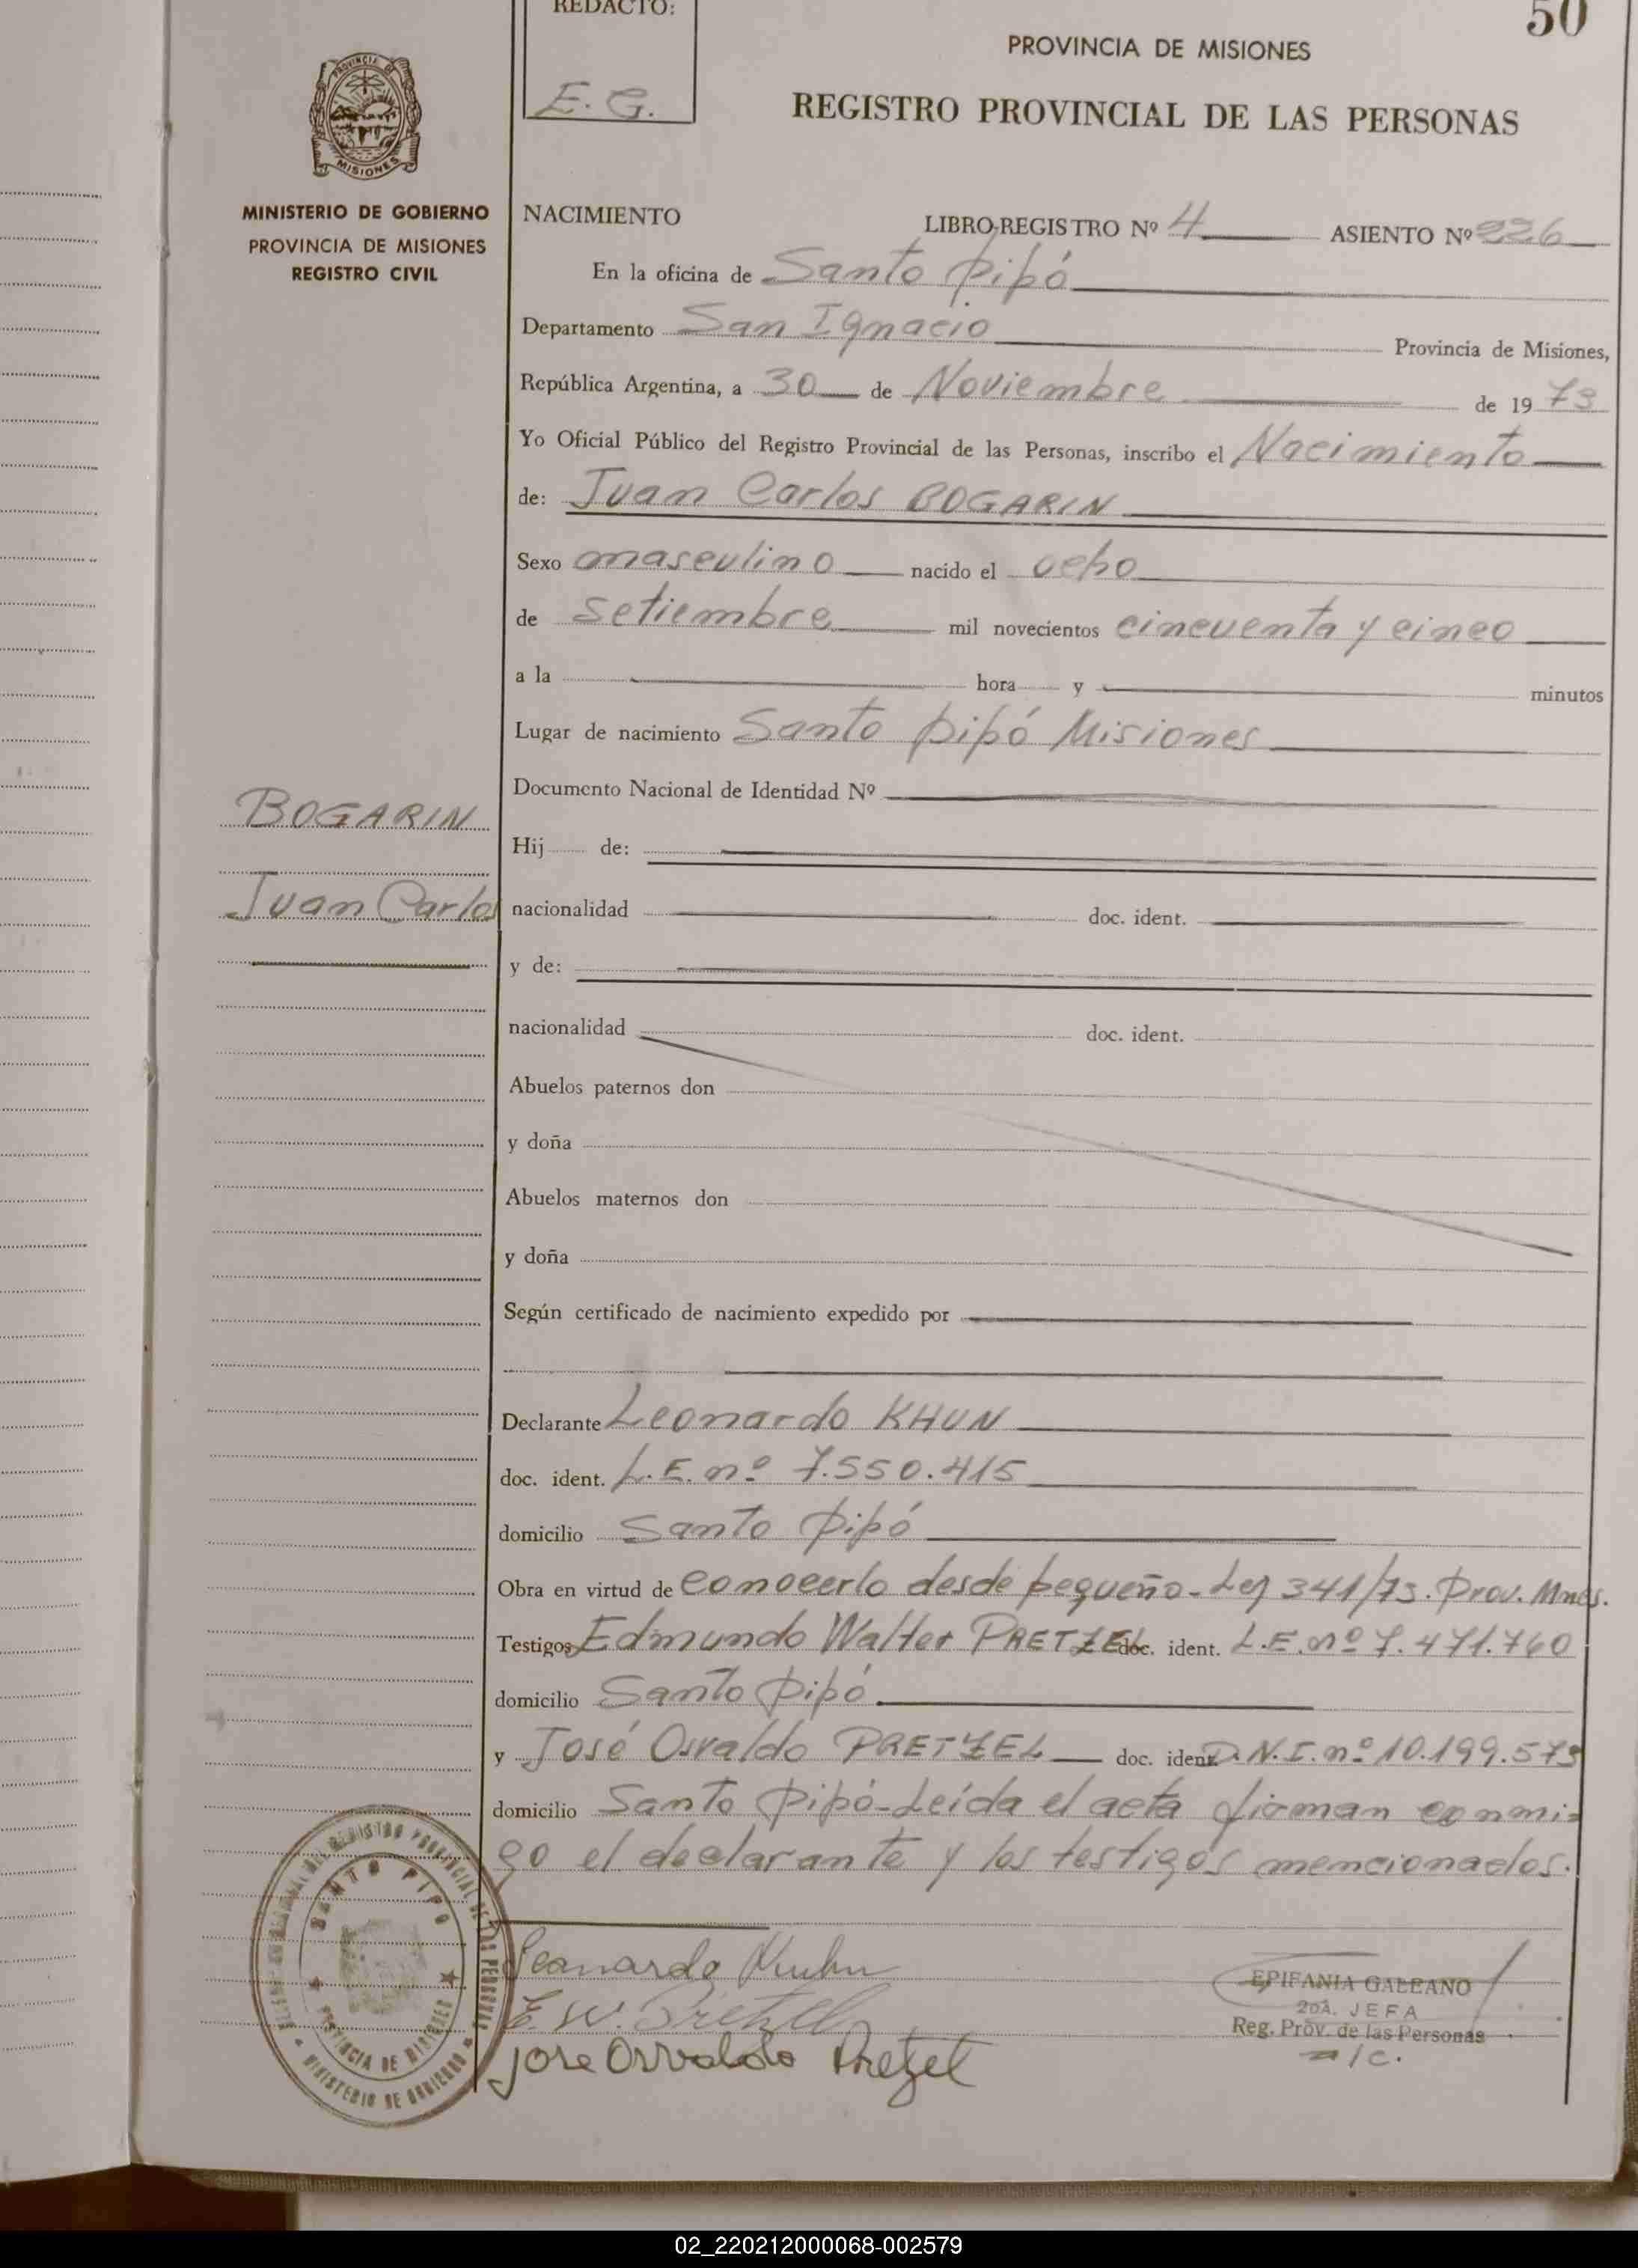 REDACTO:
E. G.
50
PROVINCIA DE MISIONES
REGISTRO PROVINCIAL DE LAS PERSONAS
PROVINCIA DE
MISIONES
MINISTERIO DE GOBIERNO
PROVINCIA DE MISIONES
REGISTRO CIVIL
NACIMIENTO LIBRO-REGISTRO Nº 4 ASIENTO Nº 226
En la oficina de Santo Pipó
Departamento San Ignacio Provincia de Misiones,
República Argentina, a 30 de Noviembre de 19 73
Yo Oficial Público del Registro Provincial de las Personas, inscribo el Nacimiento
de: Juan Carlos BOGARIN
Sexo masculino nacido el ocho
de setiembre mil novecientos cincuenta y cinco
a la hora y minutos
Lugar de nacimiento Santo Pipó Misiones
Documento Nacional de Identidad Nº
BOGARIN
Juan Carlos
Hij de:
nacionalidad doc. ident.
y de:
nacionalidad doc. ident.
Abuelos paternos don
y doña
Abuelos maternos don
y doña
Según certificado de nacimiento expedido por
Declarante Leonardo KHUN
doc. ident. L.E. nº 7.550.415
domicilio Santo Pipó
Obra en virtud de conocerlo desde pequeño - Ley 341/73. Prov. Mnes.
Testigos Edmundo Walter PRETZEL doc. ident. L.E. nº 7.471.760
domicilio Santo Pipó
y José Osvaldo PRETZEL doc. ident. D.N.I. nº 10.199.573
domicilio Santo Pipó - Leída el acta firman conmi=
go el declarante y los testigos mencionados.
Leonardo Kuhn
E. W. Pretzel
Jose Osvaldo Pretzel
SANTO PIPO
PROVINCIA DE MISIONES
MINISTERIO DE GOBIERNO
REGISTRO PROVINCIAL DE LAS PERSONAS
EPIFANIA GALEANO
2DA. JEFA
Reg. Prov. de las Personas
a/c.
02_220212000068-002579